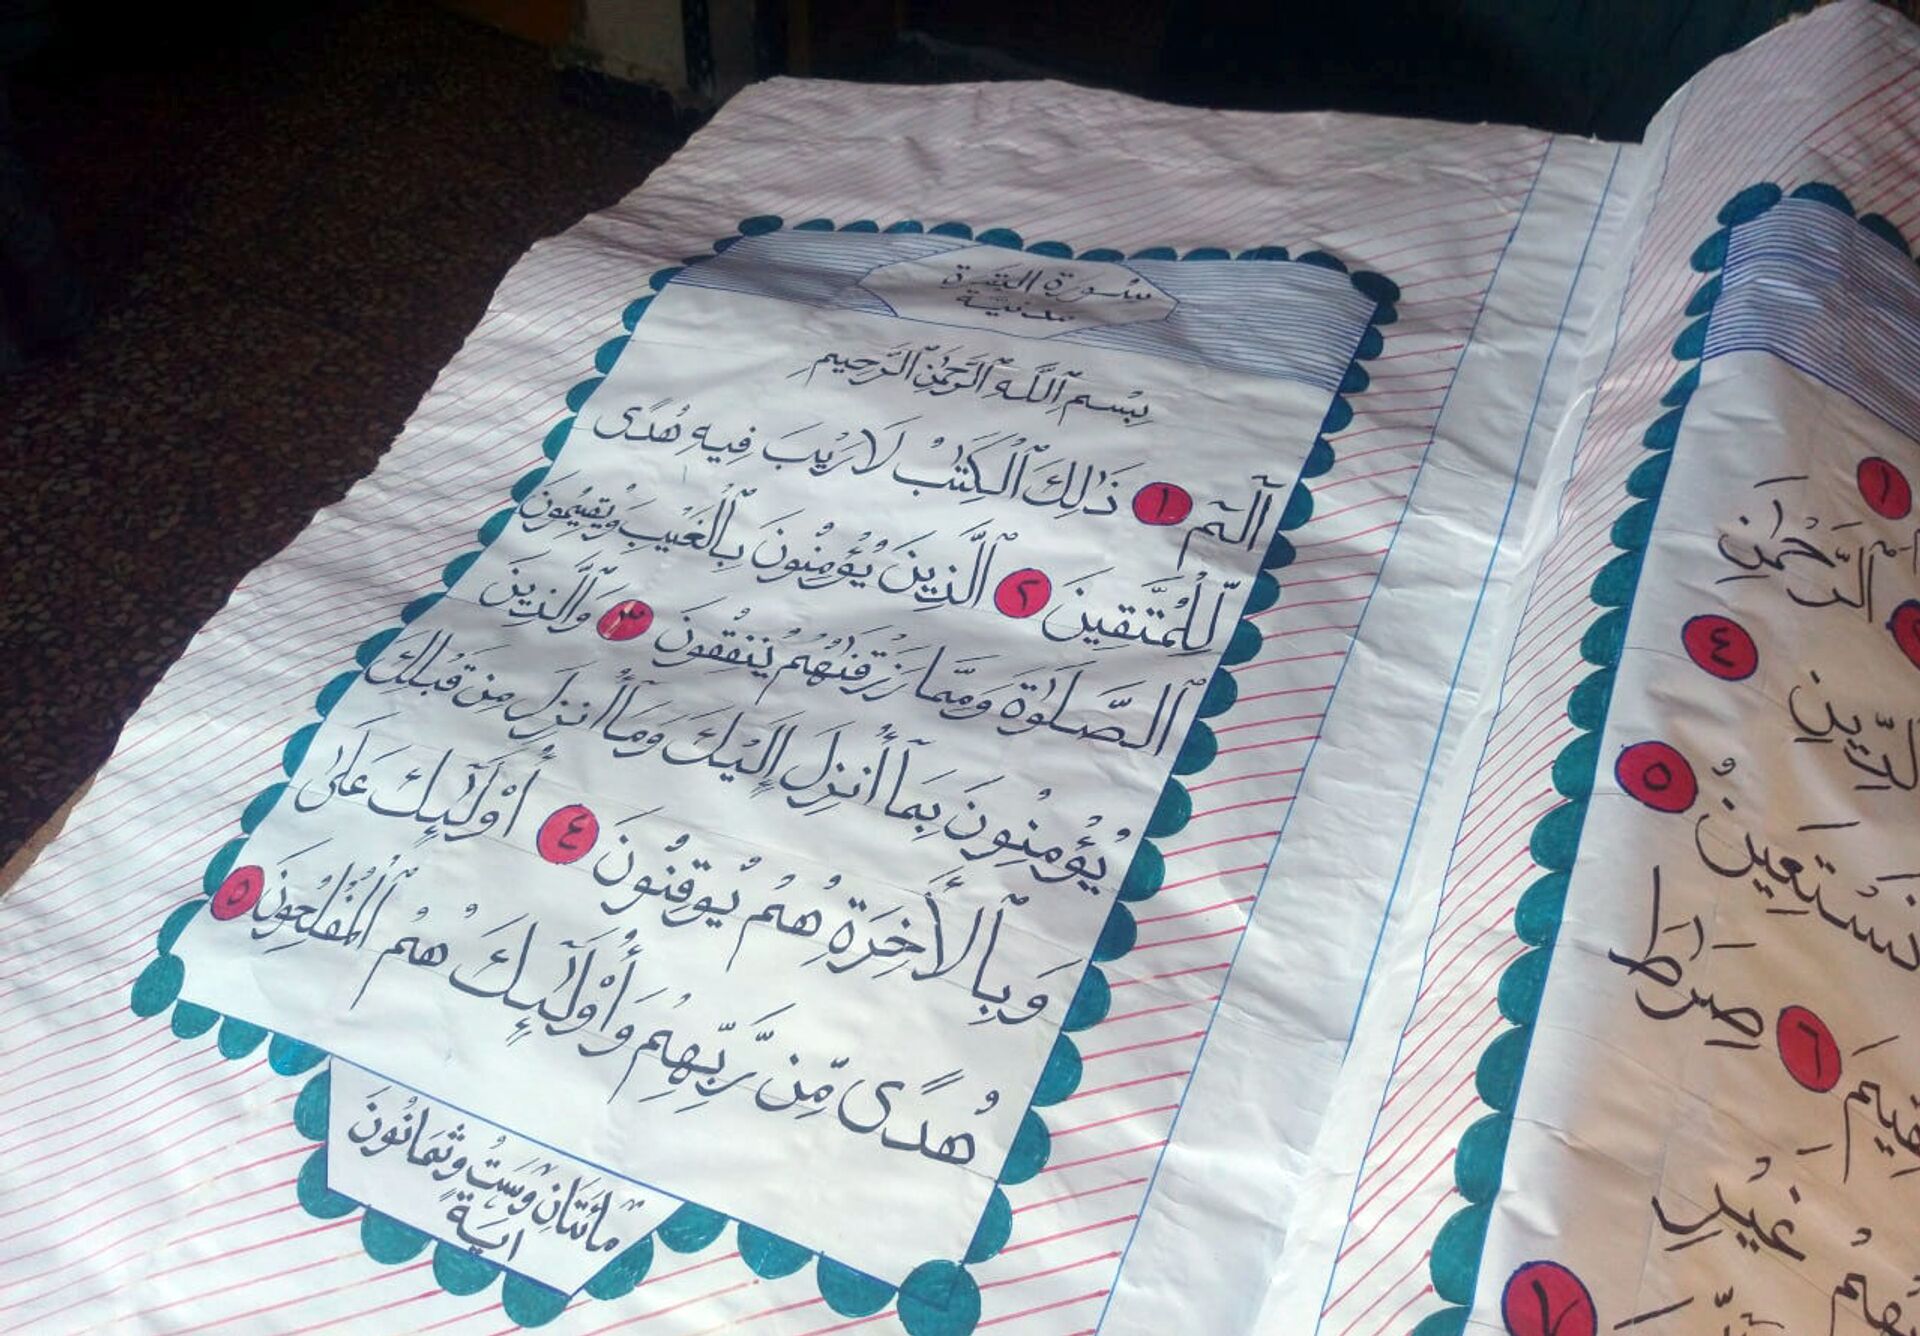 سورة البقرة
مدنية
بِسْمِ ٱللَّهِ ٱلرَّحْمَٰنِ ٱلرَّحِيمِ
الٓمٓ ١ ذَٰلِكَ ٱلْكِتَٰبُ لَا رَيْبَ فِيهِ هُدًى
لِّلْمُتَّقِينَ ٢ ٱلَّذِينَ يُؤْمِنُونَ بِٱلْغَيْبِ وَيُقِيمُونَ
ٱلصَّلَوٰةَ وَمِمَّا رَزَقْنَٰهُمْ يُنفِقُونَ ٣ وَٱلَّذِينَ
يُؤْمِنُونَ بِمَآ أُنزِلَ إِلَيْكَ وَمَآ أُنزِلَ مِن قَبْلِكَ
وَبِٱلْأَخِرَةِ هُمْ يُوقِنُونَ ٤ أُوْلَٰٓئِكَ عَلَىٰ
هُدًى مِّن رَّبِّهِمْ وَأُوْلَٰٓئِكَ هُمُ ٱلْمُفْلِحُونَ ٥
مائَتَانِ وَسَتُ وثَمَانُونَ
ايةً
١
ٱلرَّحْمَٰنِ
٤
ٱلدِّينِ
نَسْتَعِينُ ٥
٦ صِرَٰطَ
غَيْرِ
٧